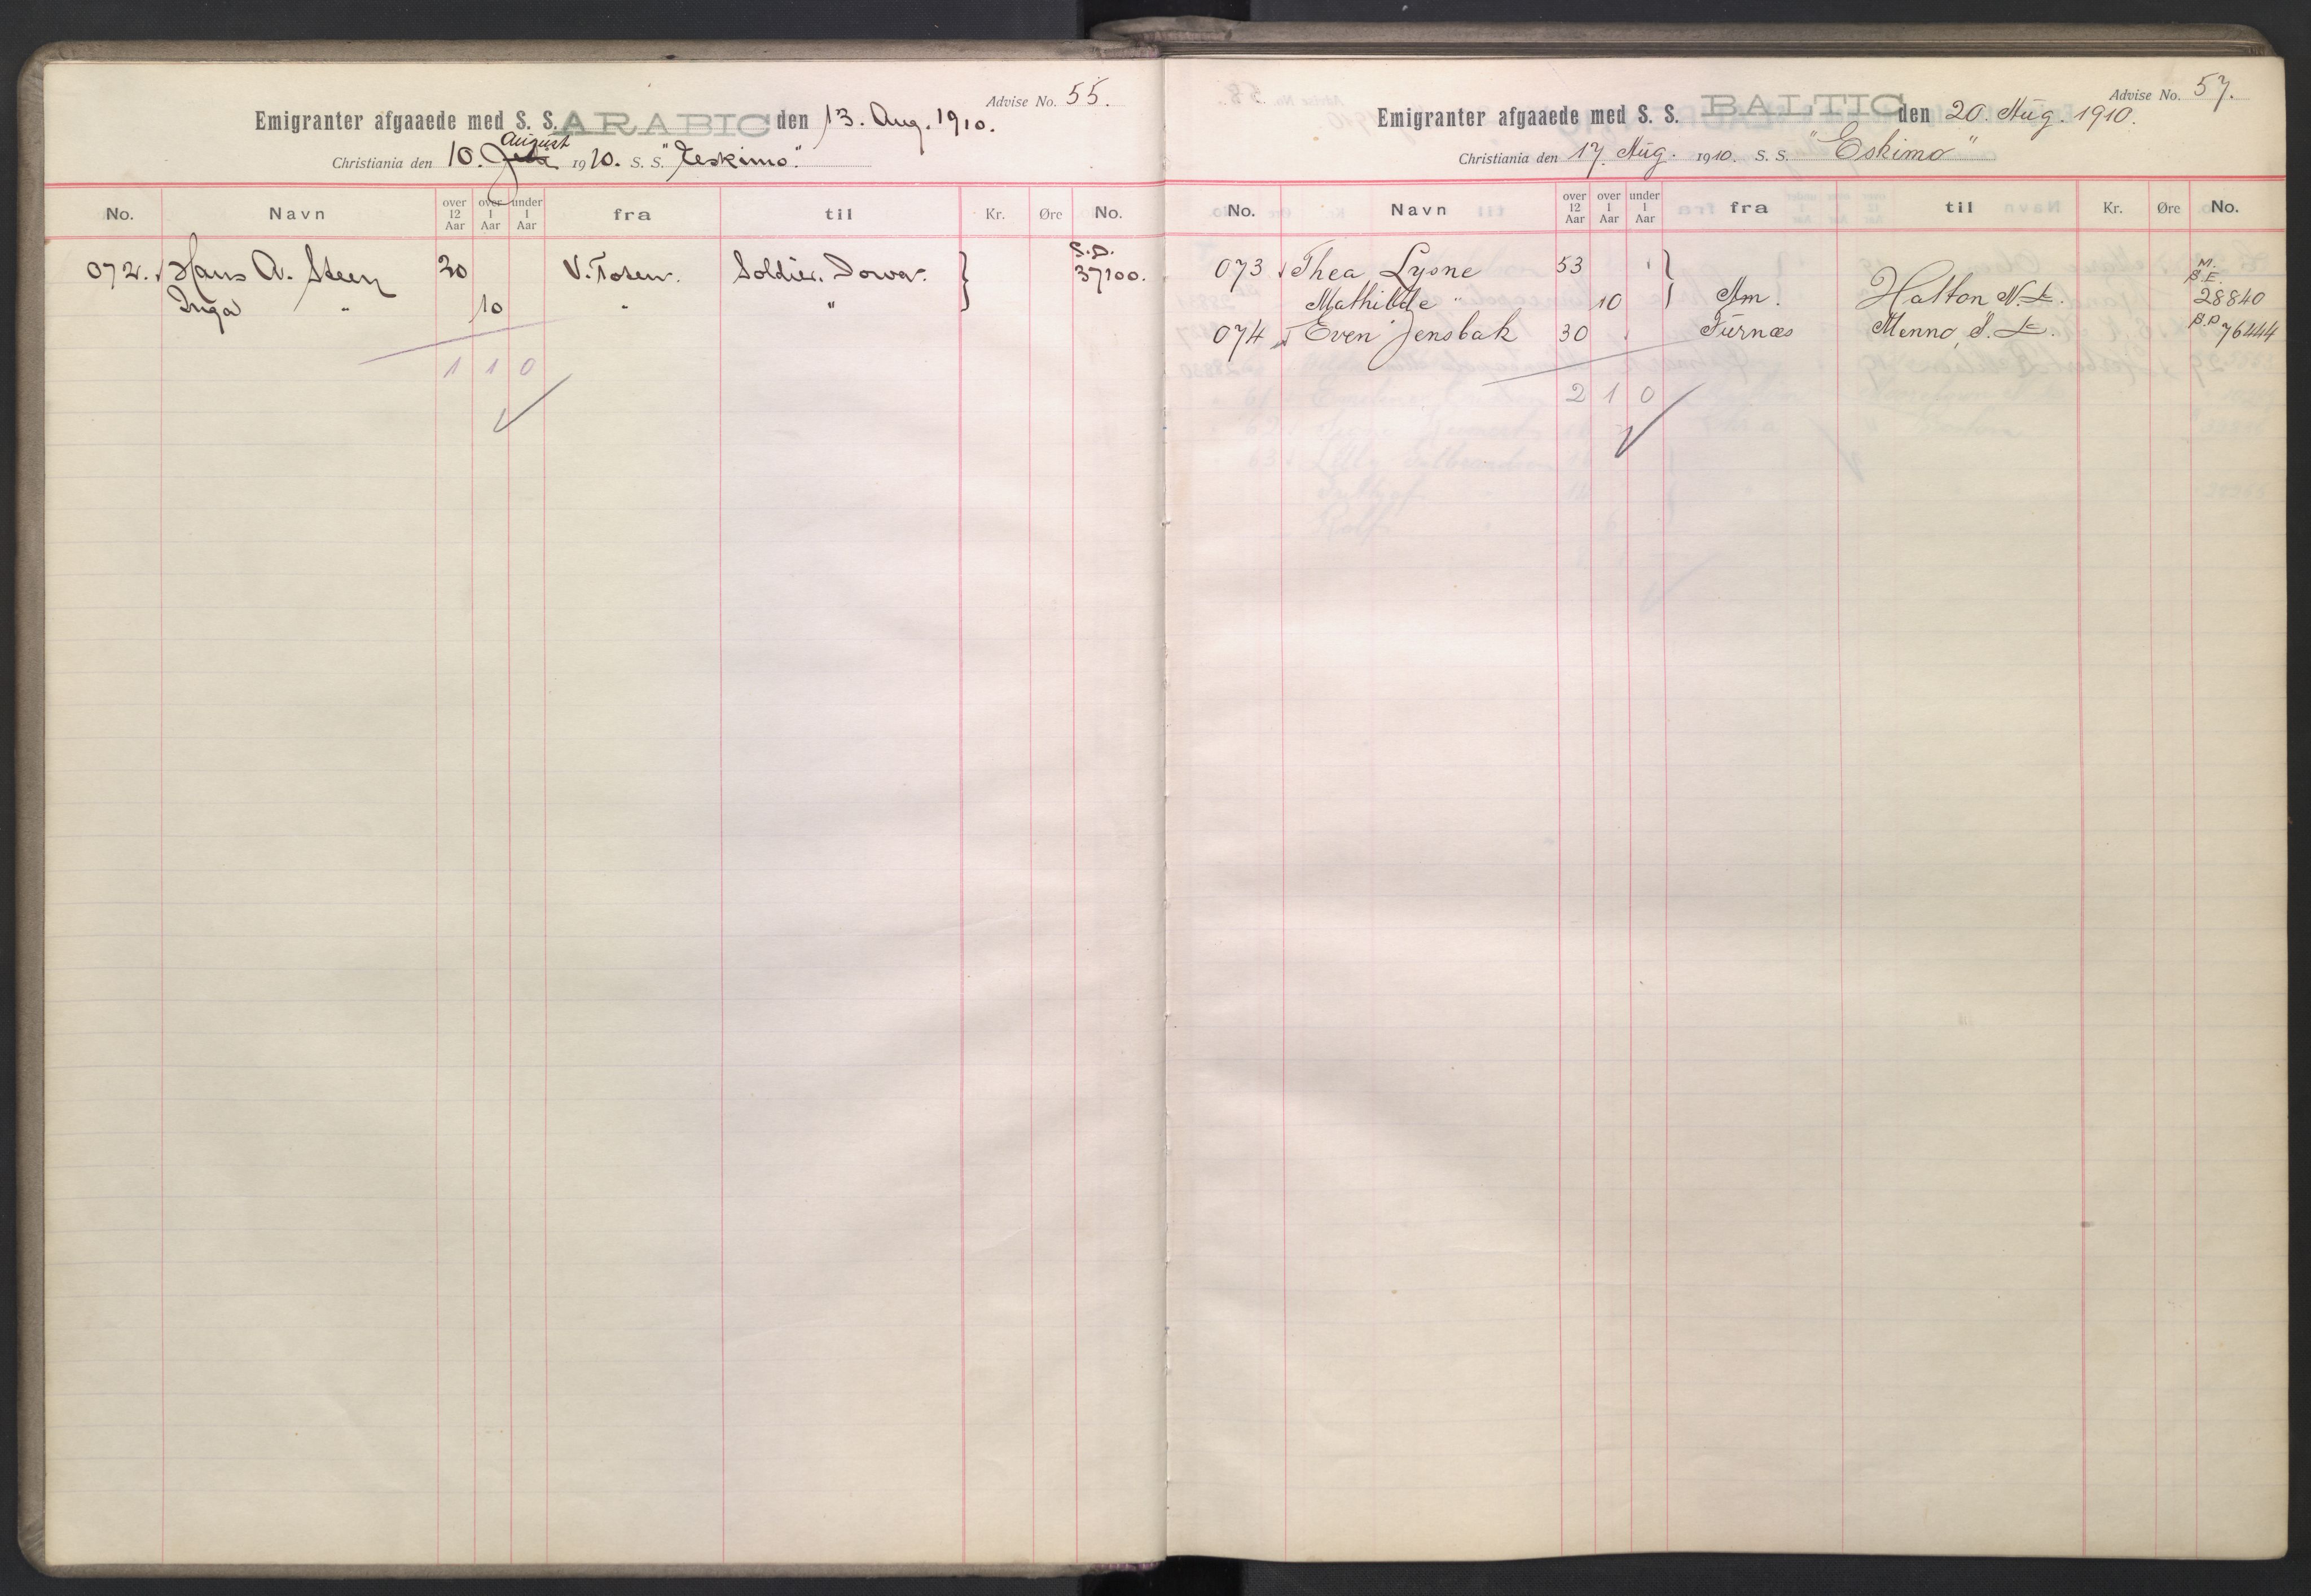 Advise No. 55.
Emigranter afgaaede med S. S. ARABIC den 13. Aug. 1910.
August
Christiania den 10. 1910. S. S. "Eeskimo".
No. Navn over 12 Aar over 1 Aar under 1 Aar fra til Kr. Øre No.
S.D.
072. Hans A. Steen 30 V. Toten. Soldier. Iowa. 37100.
Inga " 10 " "
1 1 0
Advise No. 57.
Emigranter afgaaede med S. S. BALTIC den 20. Aug. 1910.
Christiania den 17. Aug. 1910. S. S. "Eskimo"
No. Navn over 12 Aar over 1 Aar under 1 Aar fra til Kr. Øre No.
M.
B.E.
073 Thea Lysne 53
Mathilde " 10 Am. Hatton N. D. 28840
074 Even Jensbak 30 Furnæs Menno, S. D. B.P 76444
2 1 0